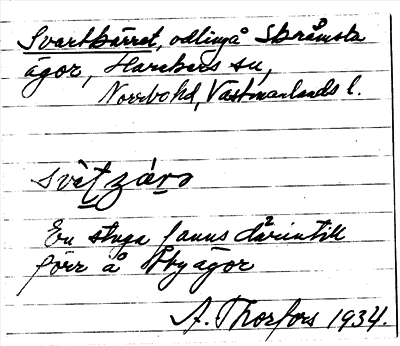 Svartkärret, odling å Skråmsta
ägor, Harakers sn,
Norrbo hd, Västmanlands l.
En stuga fanns därintill
förr å Åby ägor
A. Thorfors 1934.